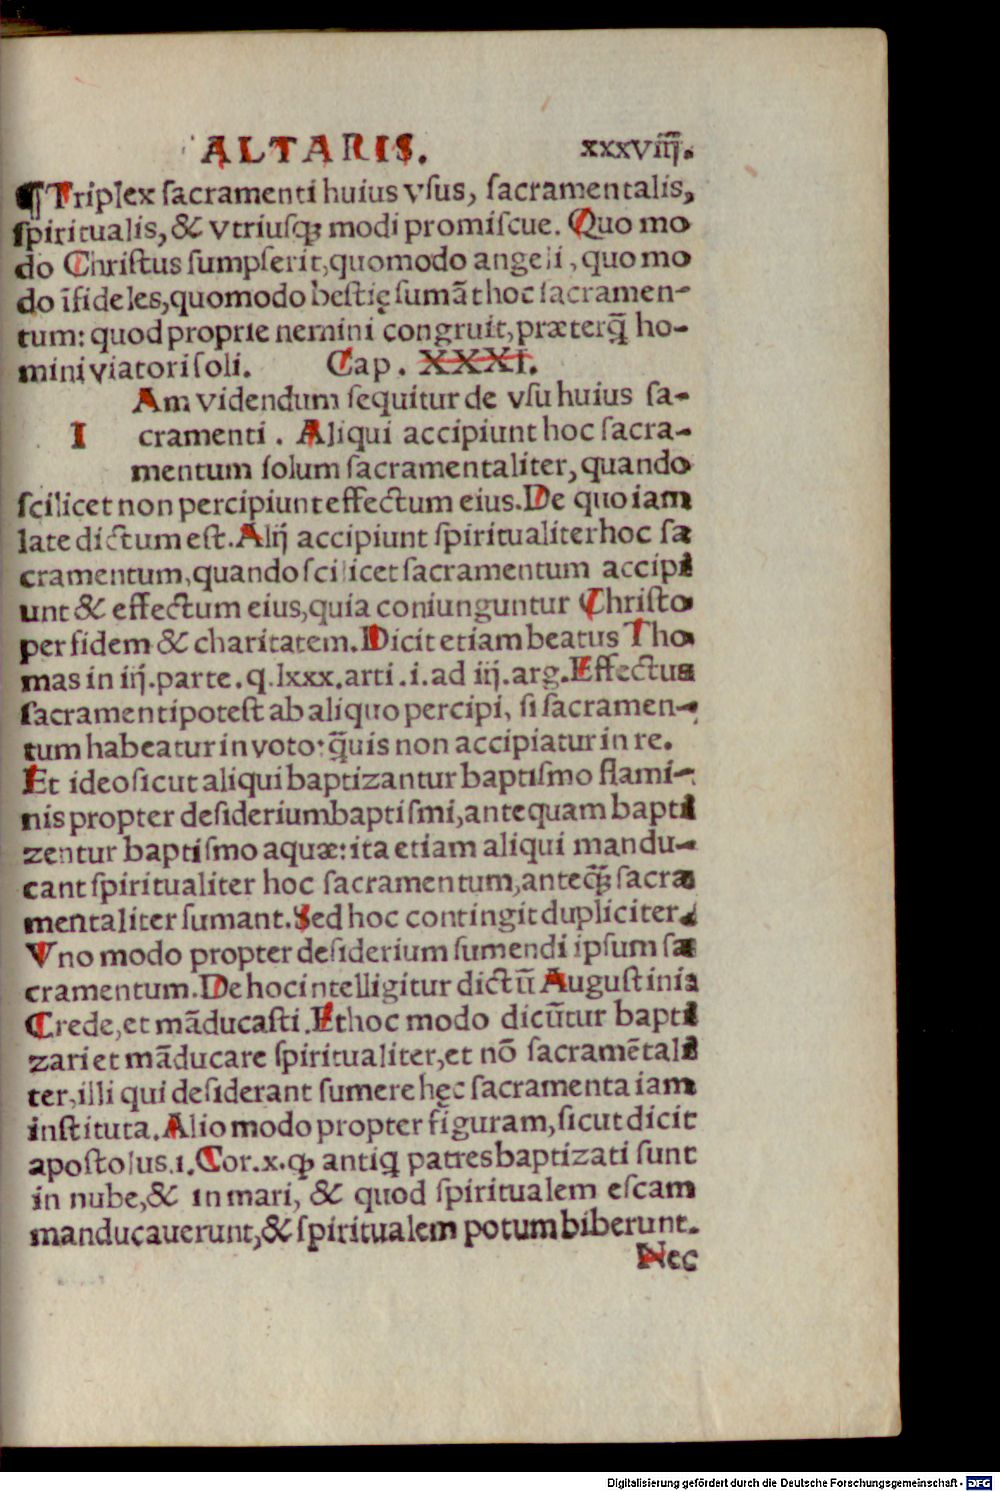 ALTARIS. xxxviiij.
¶ Triplex sacramenti huius vsus, sacramentalis,
spiritualis, & vtriusqꝫ modi promiscue. Quo mo
do Christus sumpserit, quomodo angeli, quo mo
do īfideles, quomodo bestię sumāt hoc sacramen-
tum: quod proprie nemini congruit, præterq̄ ho-
mini viatori soli. Cap. XXXI.
Am videndum sequitur de vsu huius sa-
I cramenti. Aliqui accipiunt hoc sacra-
mentum solum sacramentaliter, quando
scilicet non percipiunt effectum eius. De quo iam
late dictum est. Alij accipiunt spiritualiter hoc sa
cramentum, quando scilicet sacramentum accipi
unt & effectum eius, quia coniunguntur Christo
per fidem & charitatem. Dicit etiam beatus Tho
mas in iij. parte. q. lxxx. arti. i. ad iij. arg. Effectus
sacramenti potest ab aliquo percipi, si sacramen-
tum habeatur in voto: q̄uis non accipiatur in re.
Et ideo sicut aliqui baptizantur baptismo flami-
nis propter desiderium baptismi, antequam bapti
zentur baptismo aquæ: ita etiam aliqui mandu-
cant spiritualiter hoc sacramentum, anteq̄ꝫ sacra
mentaliter sumant. Sed hoc contingit dupliciter.
Vno modo propter desiderium sumendi ipsum sa
cramentum. De hoc intelligitur dictū Augustini
Crede, et māducasti. Et hoc modo dicūtur bapti
zari et māducare spiritualiter, et nō sacramētali
ter, illi qui desiderant sumere hęc sacramenta iam
instituta. Alio modo propter figuram, sicut dicit
apostolus. 1. Cor. x. ꝙ antiq patres baptizati sunt
in nube, & in mari, & quod spiritualem escam
manducauerunt, & spiritualem potum biberunt.
Nec
Digitalisierung gefördert durch die Deutsche Forschungsgemeinschaft - DFG